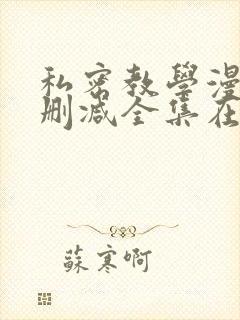 私密教學漫
刪減全集在
蘇寒啊